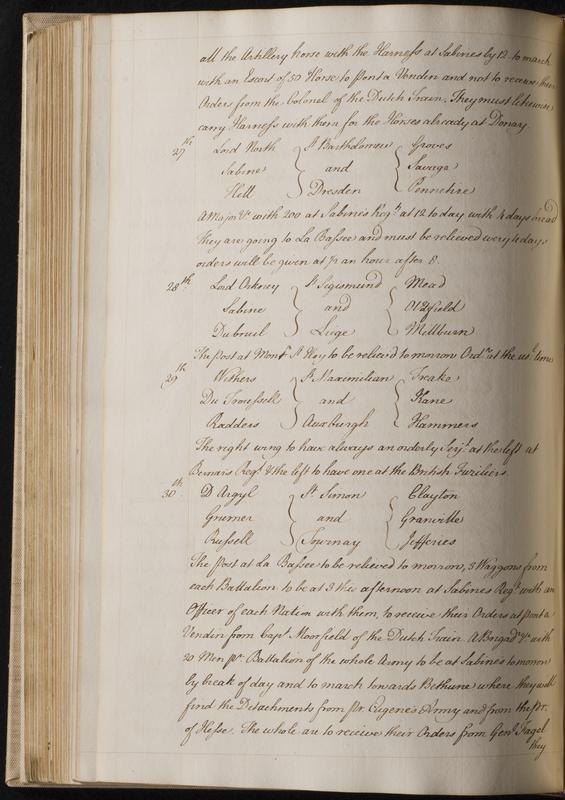 all the Artillery horse with the Harness at Sabines by 12 to march
with an Escort of 50 Horse to pont a Vendin and not to receive their
Orders from the Colonel of the Dutch Train. They must likewise
carry Harness with them for the Horses already at Donay.
27th Lord North } St Bartholomew { Groves
Sabine } and { Savage
Hill } Dresden { Pennetire
A Major &c with 200 at Sabines Regt at 12 to day with 4 days bread
they are going to La Bassee and must be relieved every 4 days
orders will be given at ½ an hour after 8
28th Lord Orkney } St Sigismund { Mead
Sabine } and { Oldfield
Dubreuil } Liege { Millburn
The post at Mont St Eloy to be reliev'd to morrow Ordrs at the usl time
29th Withers } St Maximilian { Freake
Du Troussell } and { Kane
Radders } Auxburgh { Hammers
The right wing to have always an orderly Serjt at the left at
Bernars Regt & the left to have one at the British Fuziliers.
30th D Argyl } St Simon { Clayton
Grumer } and { Granville
Russell } Tournay { Jefferies
The post at La Bassee to be relieved to morrow, 3 Waggons from
each Battalion to be at 3 this afternoon at Sabines Regt with an
Officer of each Nation with them, to receive their Orders at pont a
Vendin from Capt Moorfield of the Dutch Train. A Brigadr &c with
20 Men pr Battalion of the whole Army to be at Sabines to morrow
by break of day and to march towards Bethune where they will
find the Detachments from Pr. Eugene's Army and from the Pr.
of Hesse. The whole are to receive their Orders from Genl Fagel
they